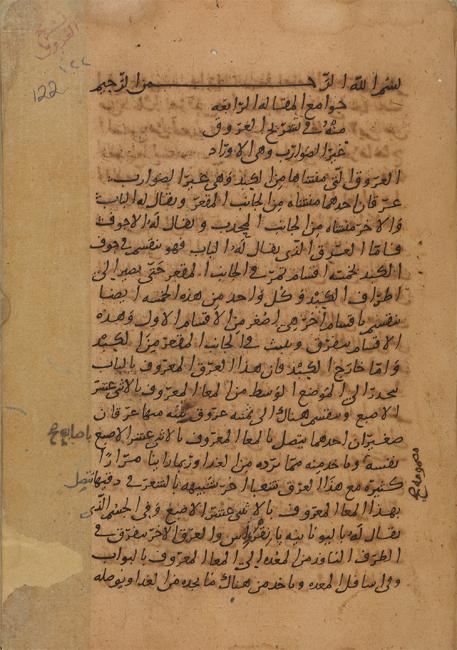 بسم الله الرحمن الرحيم
جوامع المقاله الرابعه
منه في تشريح العروق
غير الضوارب وهي الاوراد
العروق التي منشاها من الكبد وهي غير الضوارب
عرقان احدهما منشاه من الجانب المقعر ويقال له الباب
والاخر منشاه من الجانب المحدب ويقال له الاجوف
فاما العرق الذي يقال له الباب فهو ينقسم في جوف
الكبد بخمسة اقسام تمر في الجانب المقعر حتى يصير الى
اطراف الكبد وكل واحد من هذه الخمسة ايضا
ينقسم باقسام اخر هي اصغر من الاقسام الاول وهذه
الاقسام تتفرق وتنبث في الجانب المقعر من الكبد
واما خارج الكبد فان هذا العرق المعروف بالباب
ينحدر الى الموضع الوسط من المعا المعروف بالاثني عشر
الاصبع وينقسم هناك الى ثمنية عروق ثمنه منها عرقان
صغيران احدهما يتصل بالمعا المعروف بالاثني عشر الاصبع
نفسه وياخذ منه مما يرده من الغذا وربما راينا مرارا
كثيرة مع هذا العرق شعبا اخر شبيهه بالشعر في دقتها تتصل
بهذا المعا المعروف بالاثني عشر الاصبع وفي الجسم الذي
يقال له باليونانيه والعرق الاخر يتفرق في
الطرف النافذ من المعده الى المعا المعروف بالبواب
وفي اسافل المعده وياخذ من هناك ما يجده من الغذا ويوصله
122